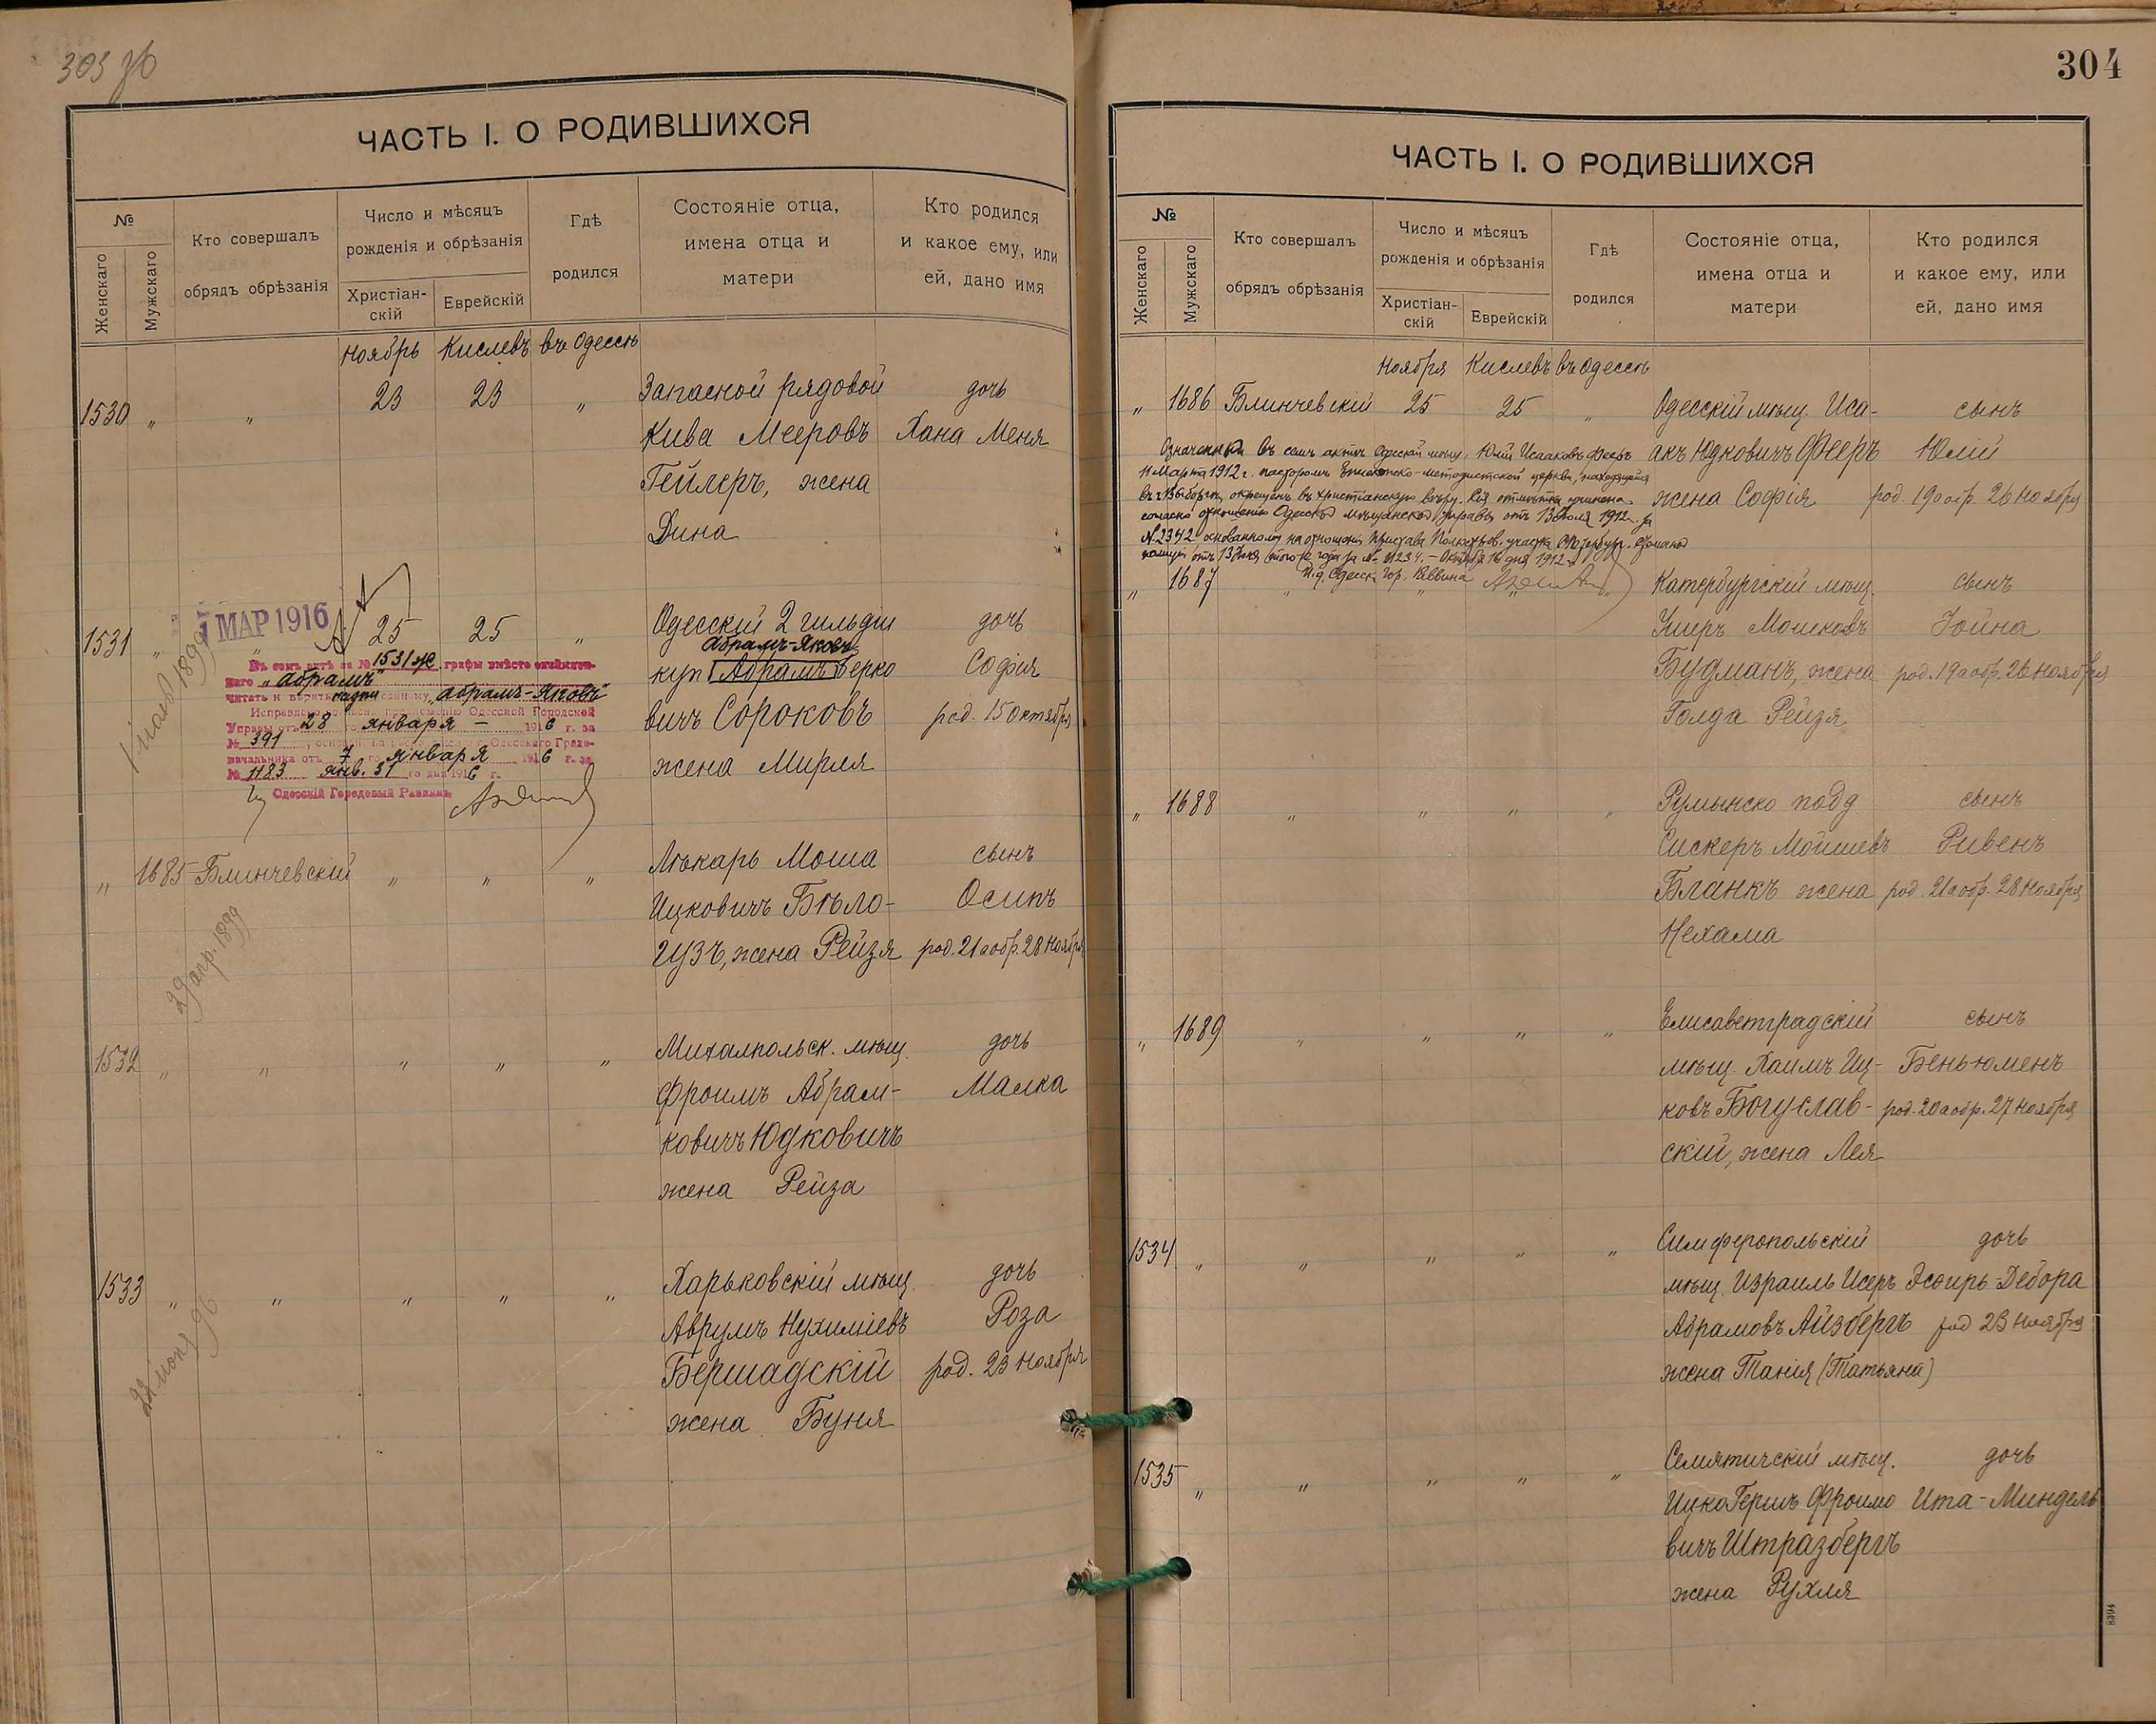 303 об
ЧАСТЬ I. О РОДИВШИХСЯ
№
Женскаго
Мужскаго
Кто совершалъ
обрядъ обрѣзанія
Число и мѣсяцъ
рожденія и обрѣзанія
Христіан-
скій
Еврейскій
Гдѣ
родился
Состояніе отца,
имена отца и
матери
Кто родился
и какое ему, или
ей, дано имя
Ноябрь Кислевъ въ Одессѣ
1530 " " 23 23 " Запасной рядовой дочь
Кива Мееровъ Хана Меня
Гейлеръ, жена
Дина
7 МАР 1916
1531 " " 25 25 " Одесскій 2 гильдіи дочь
Абрамъ-Яковъ
куп Абрамъ Берко София
вичъ Сороковъ род. 15 октября
жена Мирля
Въ семъ актѣ за № 1531 же графы вмѣсто
"Абрамъ"
читать "Абрамъ-Яковъ"
Одесской Городской
Управы отъ 28 января 1916 г. за
№ 391 Одесскаго Градо-
начальника отъ 7 января 1916 г. за
№ 1123 янв. 31 го дня 1916 г.
Одесскій Городовый Раввинъ
1899
" 1685 Блинчевскій " " " Лѣкарь Моша сынъ
Ицковичъ Бѣло- Осипъ
гузъ, жена Рейзя род. 21 а обр. 28 ноября
29 апр. 1899
1532 " " " " " Михалпольск. мѣщ. дочь
Фроимъ Абрам- Малка
ковичъ Юдковичъ
жена Рейза
1533 " " " " " Харьковскій мѣщ. дочь
Аврумъ Нухимiевъ Роза
Бершадскій род. 23 ноября
жена Буня
304
ЧАСТЬ I. О РОДИВШИХСЯ
№
Женскаго
Мужскаго
Кто совершалъ
обрядъ обрѣзанія
Число и мѣсяцъ
рожденія и обрѣзанія
Христіан-
скій
Еврейскій
Гдѣ
родился
Состояніе отца,
имена отца и
матери
Кто родился
и какое ему, или
ей, дано имя
Ноября Кислевъ въ Одессѣ
" 1686 Блинчевскій 25 25 " Одесскій мѣщ. Иса- сынъ
акъ Юдковичъ Фееръ Юлій
жена Софія род. 19 а обр. 26 ноября
Означенный въ семъ актѣ Одесскій мѣщ. Юлій Исааковъ Фееръ
11 Марта 1912 г. пасторомъ Епископско-методистской церкви, находящейся
въ г. Выборгѣ, окрещенъ въ христіанскую вѣру. Сія отмѣтка учинена
согласно отношенію Одесской мѣщанской управы отъ 13 Июля 1912 г. за
№ 2342 основанному на отношеніи Пристава Полюстровск. участка С.Петербург.
полиціи отъ 13 Июня 1912 года за № 11234. — Октября 16 дня 1912 г.
И. д. Одесск. Гор. Раввина
" 1687 " " " " Катербургскій мѣщ. сынъ
Ушеръ Мошковъ Іойна
Будманъ, жена род. 19 а обр. 26 ноября
Голда Рейзя
" 1688 " " " " Румынско подд сынъ
Сискеръ Мойшевъ Рывенъ
Бланкъ жена род. 21 а обр. 28 ноября
Нехама
" 1689 " " " " Елисаветградскій сынъ
мѣщ. Хаимъ Иц- Беньюменъ
ковъ Богуслав- род. 20 а обр. 27 ноября
скій, жена Лея
1534 " " " " " Симферопольскій дочь
мѣщ. Израиль Исеръ Эсѳирь-Дебора
Абрамовъ Айзбергъ род 23 ноября
жена Танiя (Татьяна)
1535 " " " " " Семятичскій мѣщ. дочь
Ицко Гершъ Фроимо Ита-Миндель
вичъ Штразбергъ
жена Рухля